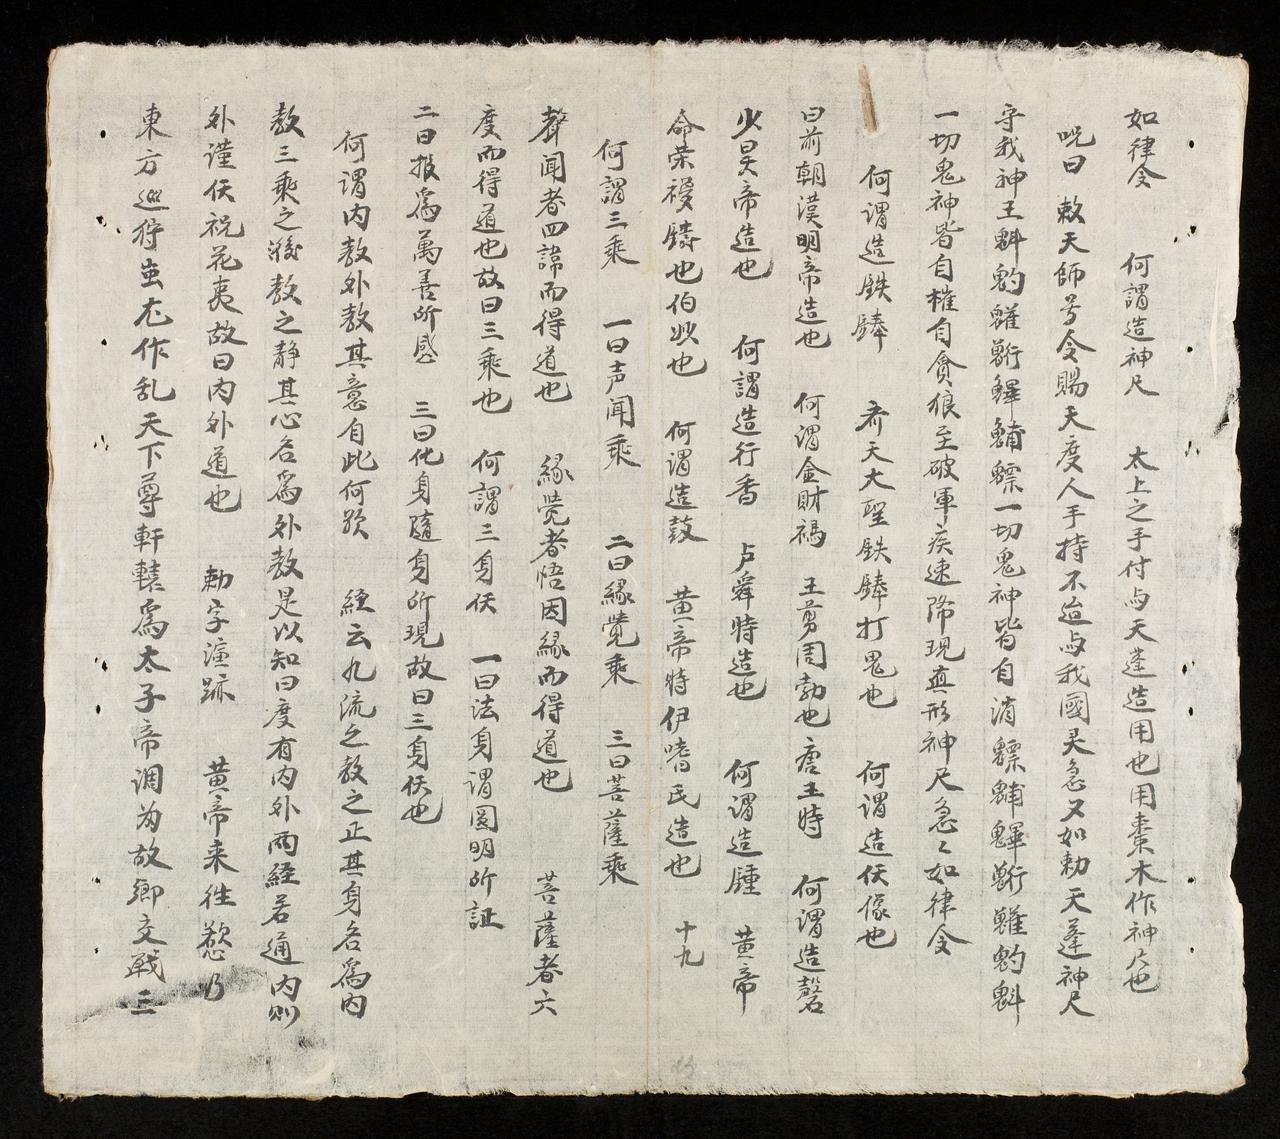 如律令 何謂造神尺 太上之手付与天蓬造用也用棗木作神尺也
呪曰 敕天師号令賜天度人手持不迨与我國灵急又如勅天蓬神尺
守我神王魁魡䰢䰠一切鬼神皆自消魒魁
一切鬼神皆自摧自貪狼至破軍疾速降現真形神尺急〻如律令
何謂造鉄𨫼 齐天大聖鉄𨫼打鬼也 何謂造仸像也
曰前朝漢明帝造也 何謂金財禍 王剪周勃也唐王時 何謂造磬
少昊帝造也 何謂造行香 卢舜時造也 何謂造鍾 黃帝
命荣祿鑄也伯姒也 何謂造鼓 黃帝時伊嗜民造也 十九
何謂三乘 一曰声闻乘 二曰緣覺乘 三曰菩薩乘
聲闻者四諦而得道也 緣覺者悟因緣而得道也 菩薩者六
度而得道也故曰三乘也 何謂三身仸 一曰法身謂圓明所証
二曰报爲萬善所感 三曰化身隨身所現故曰三身仸也
何謂内教外教其意自此何欤 経云九流之教之正其身名爲内
教三乘之後教之静其心名爲外教是以知曰度有内外兩経若通内則
外謹仸祝花夷故曰内外道也 勅字潼跡 黄帝来往愁乃
東方巡狩蚩尤作乱天下尊軒轅爲太子帝调为故鄉交戰三